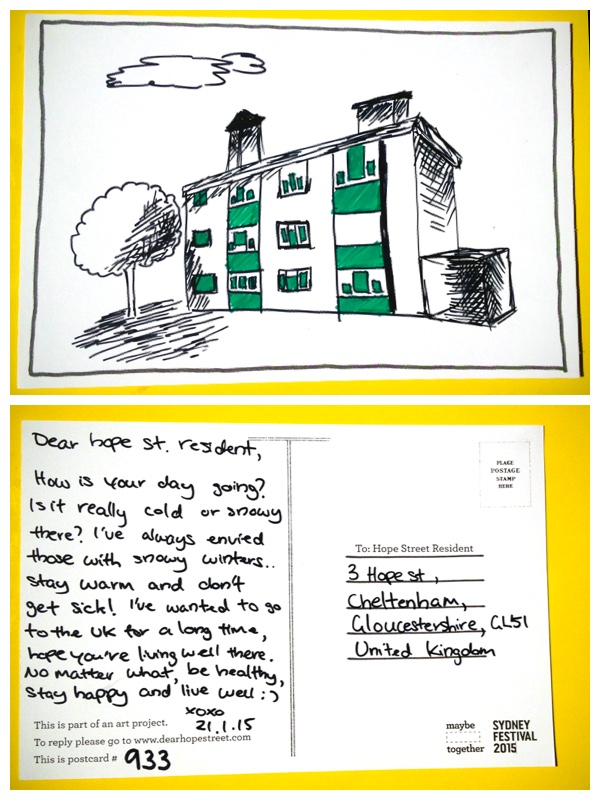 Dear hope st. resident,
How is your day going?
Is it really cold or snowy
there? I've always envied
those with snowy winters..
Stay warm and don't
get sick! I've wanted to go
to the UK for a long time,
hope you're living well there.
No matter what, be healthy,
stay happy and live well :)
xoxo
21.1.15
This is part of an art project.
To reply please go to www.dearhopestreet.com
This is postcard # 933
PLACE
POSTAGE
STAMP
HERE
To: Hope Street Resident
3 Hope st,
Cheltenham,
Gloucestershire, GL51
United Kingdom
maybe
together
SYDNEY
FESTIVAL
2015